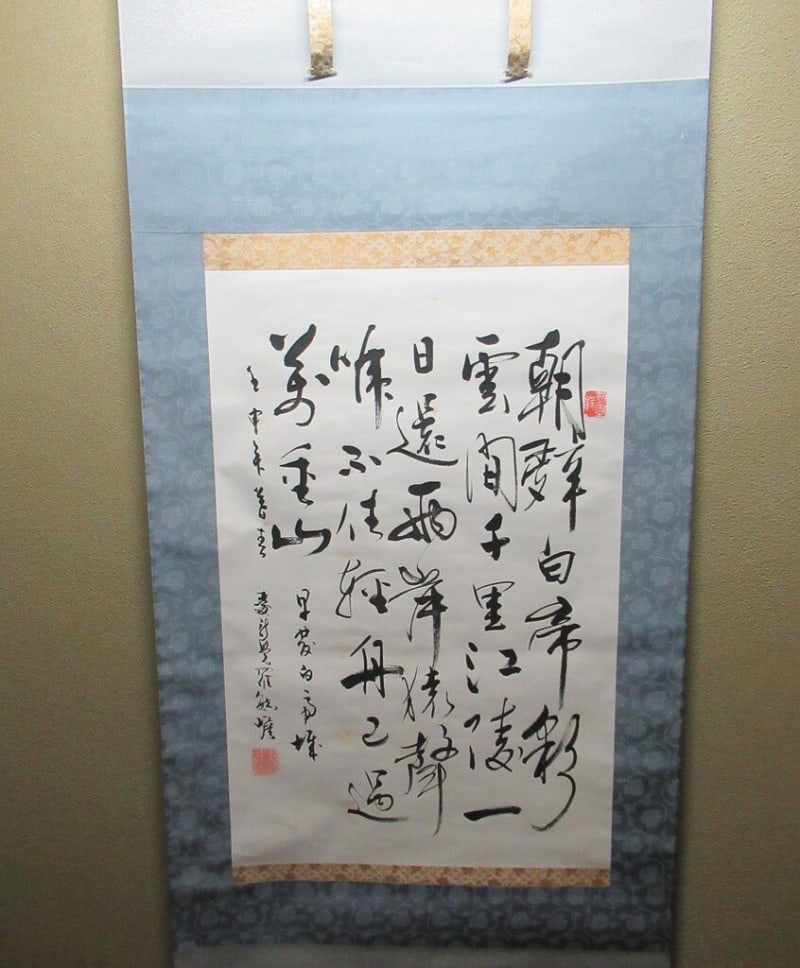 朝辭白帝彩
雲間千里江陵一
日還兩岸猿聲
啼不住輕舟已過
萬重山
早發白帝城
壬申年暮春
愛新覺羅毓嶦